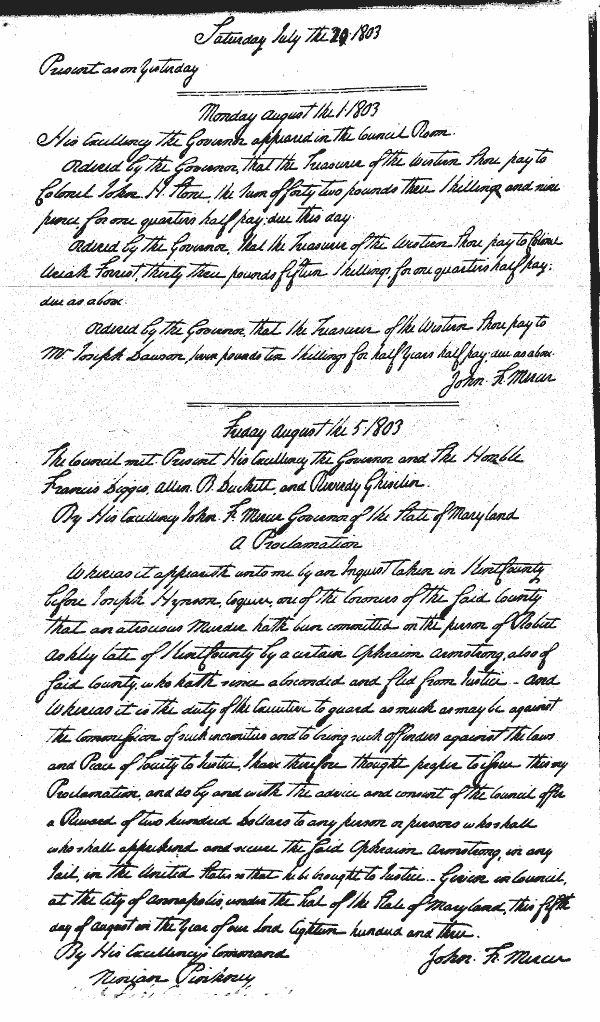 Saturday July the 29 1803
Present as on Yesterday
Monday August the 1 1803
His Excellency the Governor appeared in the Council Room.
Ordered by the Governor, that the Treasurer of the Western Shore pay to
Colonel John H. Stone, the sum of forty two pounds three Shillings and nine
pence for one quarters half pay due this day.
Ordered by the Governor, that the Treasurer of the Western Shore pay to Colonel
Uriah Forrest, thirty three pounds fifteen Shillings, for one quarters half pay,
due as above.
Ordered by the Governor, that the Treasurer of the Western Shore pay to
Mr Joseph Dawson, pounds ten Shillings for half Years half pay due as above.
John F. Mercer
Friday August the 5 1803
The Council met Present His Excellency the Governor and The Honble
Francis Digges, Allen B. Duckett, and Reverdy Ghiselin.
By His Excellency John F. Mercer Governor of the State of Maryland
A Proclamation
Whereas it appeareth unto me by an Inquest taken in Kent County
before Joseph Hynson, Esquire, one of the Coroners of the said County
that an atrocious Murder hath been committed on the person of Robert
Ashley late of Kent County by a certain Ephraim Armstrong, also of
said County, who hath since absconded and fled from Justice – And
Whereas it is the duty of the Executive to guard as much as may be against
the Commission of such enormities and to bring such offenders against the laws
and Peace of Society to Justice, I have therefore thought proper to issue this my
Proclamation, and do by and with the advice and consent of the Council offer
a Reward of two hundred Dollars to any person or persons who shall
who shall apprehend and secure the said Ephraim Armstrong, in any
Jail, in the United States so that he be brought to Justice – Given in Council,
at the City of Annapolis, under the Seal of the State of Maryland, this fifth
day of August in the Year of our Lord Eighteen hundred and three.
By His Excellency's Command John F. Mercer
Ninian Pinkney